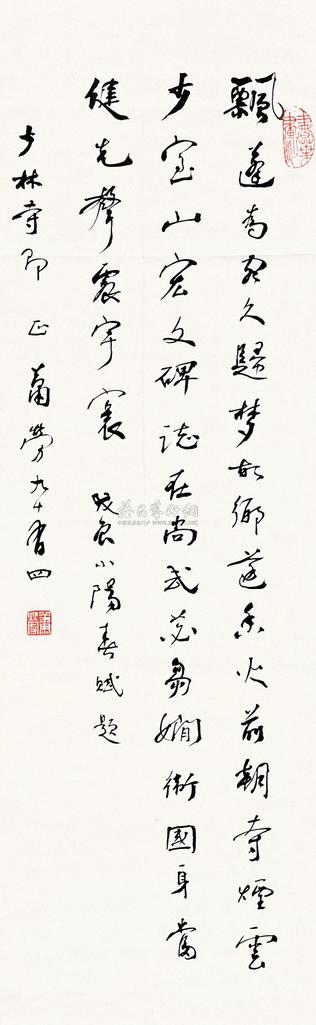 飄蓬為客久歸梦故鄉還香火前朝寺煙雲
少室山宏文碑誌在尚武苾芻嫻衛國身當
健先聲震宇寰 戊辰小陽春賦題
少林寺印正 蕭勞九十有四